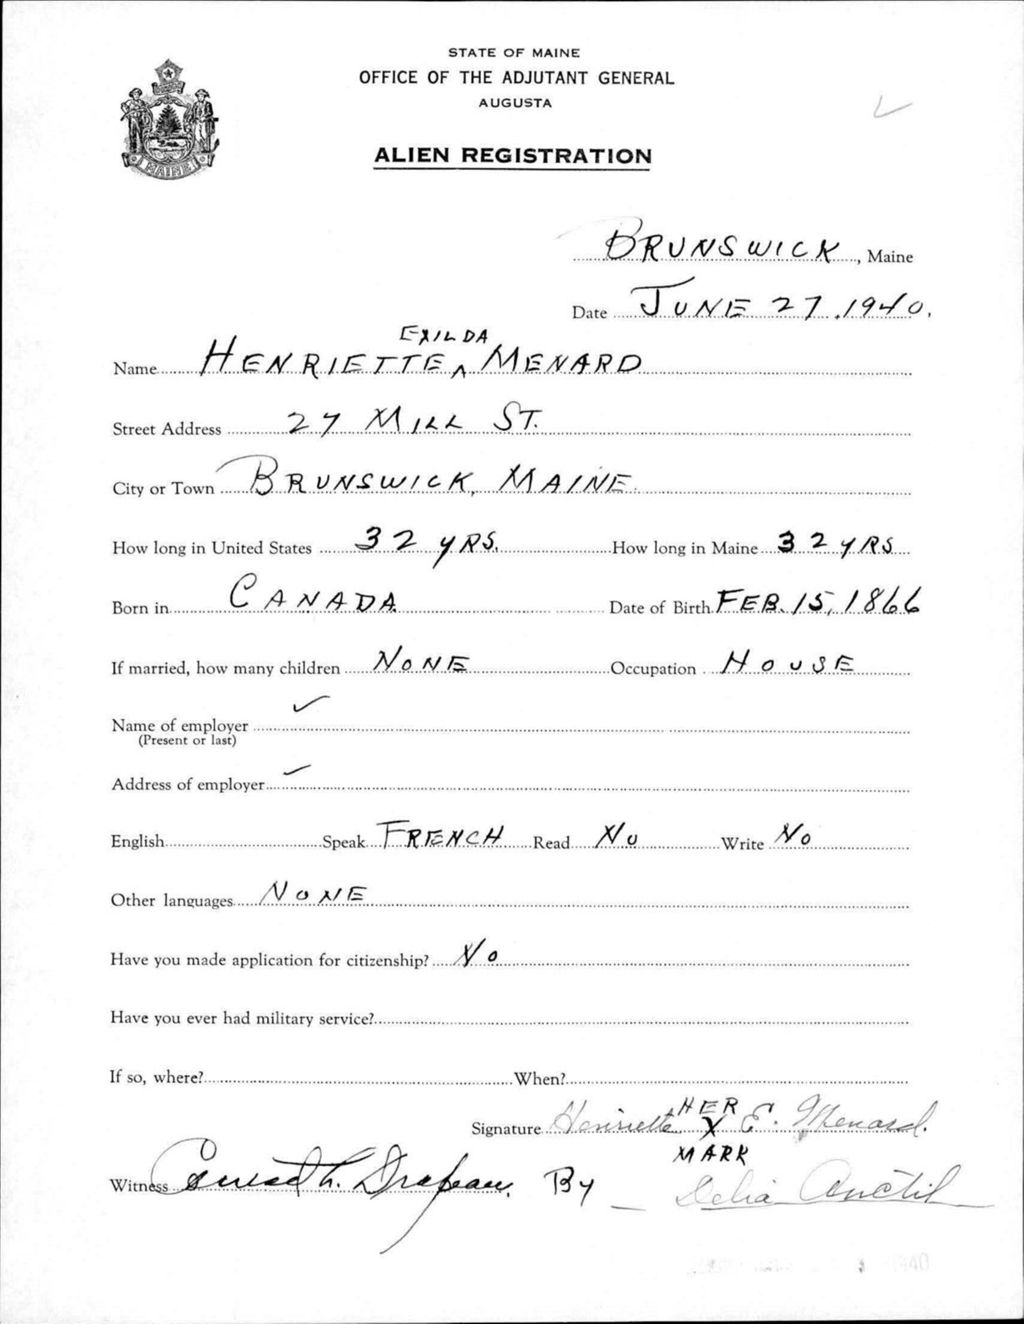 STATE OF MAINE
OFFICE OF THE ADJUTANT GENERAL
AUGUSTA
ALIEN REGISTRATION
MAINE
BRUNSWICK, Maine
Date JUNE 27, 1940.
EXILDA
Name HENRIETTE ^ MENARD
Street Address 27 MILL ST.
City or Town BRUNSWICK, MAINE.
How long in United States 32 YRS. How long in Maine 32 YRS
Born in CANADA Date of Birth FEB. 15, 1866
If married, how many children NONE Occupation HOUSE
Name of employer ✓
(Present or last)
Address of employer ✓
English Speak FRENCH Read No Write No
Other languages NONE
Have you made application for citizenship? No
Have you ever had military service?
If so, where? When?
HER
Signature Henriette X E. Menard.
MARK
Witness Conrad L. Drapeau. By Delia Anctil
1940